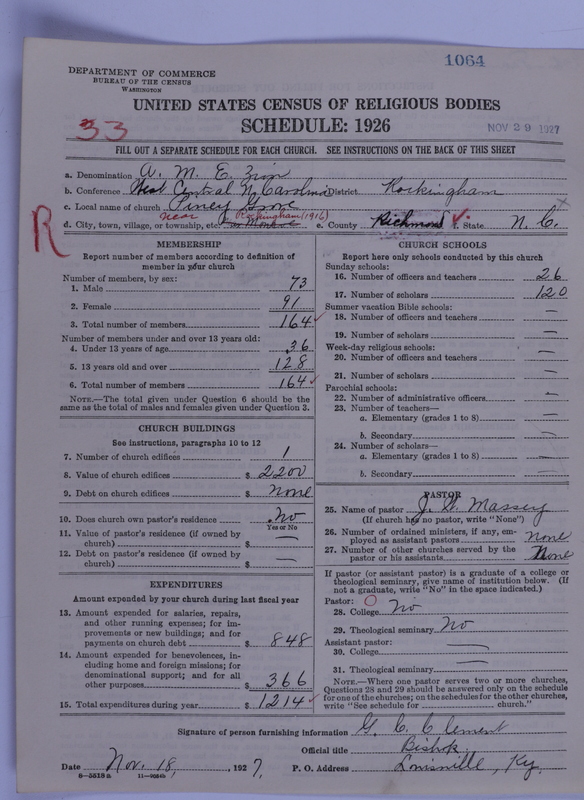 1064
DEPARTMENT OF COMMERCE
BUREAU OF THE CENSUS
WASHINGTON
UNITED STATES CENSUS OF RELIGIOUS BODIES
33
SCHEDULE: 1926
NOV 29 1927
FILL OUT A SEPARATE SCHEDULE FOR EACH CHURCH. SEE INSTRUCTIONS ON THE BACK OF THIS SHEET
a. Denomination A. M. E. Zion
b. Conference West Central N. Carolina District Rockingham
c. Local name of church Piney Grove
near Rockingham (1916)
R
d. City, town, village, or township, etc. e. County Richmond f. State N. C.
MEMBERSHIP
Report number of members according to definition of
member in your church
Number of members, by sex:
1. Male 73
2. Female 91
3. Total number of members 164
Number of members under and over 13 years old:
4. Under 13 years of age 36
5. 13 years old and over 128
6. Total number of members 164
NOTE.—The total given under Question 6 should be the
same as the total of males and females given under Question 3.
CHURCH BUILDINGS
See instructions, paragraphs 10 to 12
7. Number of church edifices 1
8. Value of church edifices $ 2200
9. Debt on church edifices $ none
10. Does church own pastor's residence No
Yes or No
11. Value of pastor's residence (if owned by
church) $ —
12. Debt on pastor's residence (if owned by
church) $ —
EXPENDITURES
Amount expended by your church during last fiscal year
13. Amount expended for salaries, repairs,
and other running expenses; for im-
provements or new buildings; and for
payments on church debt $ 848
14. Amount expended for benevolences, in-
cluding home and foreign missions; for
denominational support; and for all
other purposes $ 366
15. Total expenditures during year $ 1214
CHURCH SCHOOLS
Report here only schools conducted by this church
Sunday schools:
16. Number of officers and teachers 26
17. Number of scholars 120
Summer vacation Bible schools:
18. Number of officers and teachers —
19. Number of scholars —
Week-day religious schools:
20. Number of officers and teachers —
21. Number of scholars —
Parochial schools:
22. Number of administrative officers —
23. Number of teachers—
a. Elementary (grades 1 to 8) —
b. Secondary —
24. Number of scholars—
a. Elementary (grades 1 to 8) —
b. Secondary —
PASTOR
25. Name of pastor J. W. Massey
(If church has no pastor, write "None")
26. Number of ordained ministers, if any, em-
ployed as assistant pastors none
27. Number of other churches served by the
pastor or his assistants None
If pastor (or assistant pastor) is a graduate of a college or
theological seminary, give name of institution below. (If
not a graduate, write "No" in the space indicated.)
Pastor: O
28. College No
29. Theological seminary No
Assistant pastor:
30. College —
31. Theological seminary —
NOTE.—Where one pastor serves two or more churches,
Questions 28 and 29 should be answered only on the schedule
for one of the churches; on the schedules for the other churches,
write "See schedule for church."
Signature of person furnishing information G. C. Clement
Official title Bishop
Date Nov. 18, 1927. P. O. Address Louisville, Ky.